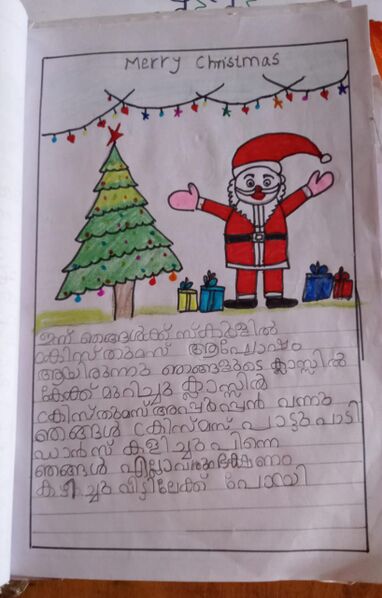 Merry Christmas
ഇന്ന് ഞങ്ങൾക്ക് സ്കൂളിൽ
ക്രിസ്തുമസ് ആഘോഷം
ആയിരുന്നു ഞങ്ങളുടെ ക്ലാസ്സിൽ
കേക്ക് മുറിച്ചു ക്ലാസ്സിൽ
ക്രിസ്തുമസ് അപ്പൂപ്പൻ വന്നു
ഞങ്ങൾ ക്രിസ്മസ് പാട്ടുപാടി
ഡാൻസ് കളിച്ചു പിന്നെ
ഞങ്ങൾ എല്ലാവരും ഭക്ഷണം
കഴിച്ചു വീട്ടിലേക്ക് പോയി